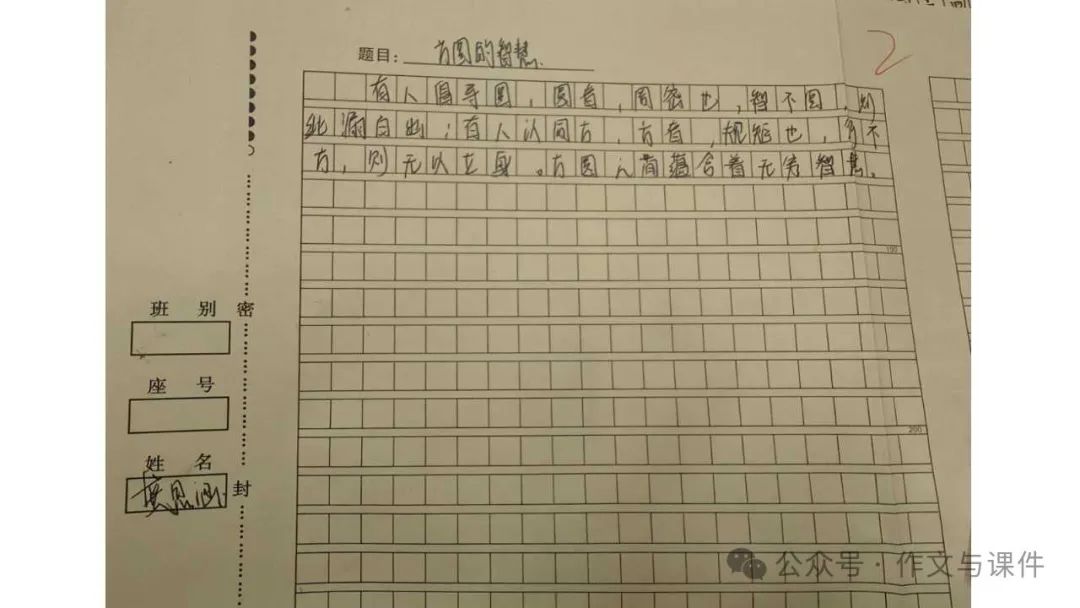 题目：方圆的智慧
2
有人图寻圆，圆者，周密也，智不圆，则
纰漏自出；有人认同方，方者，规矩也，身不
方，则无以立身。方圆之间蕴含着无尽智慧。
100
200
班 别
座 号
姓 名
密
封
公众号·作文与课件